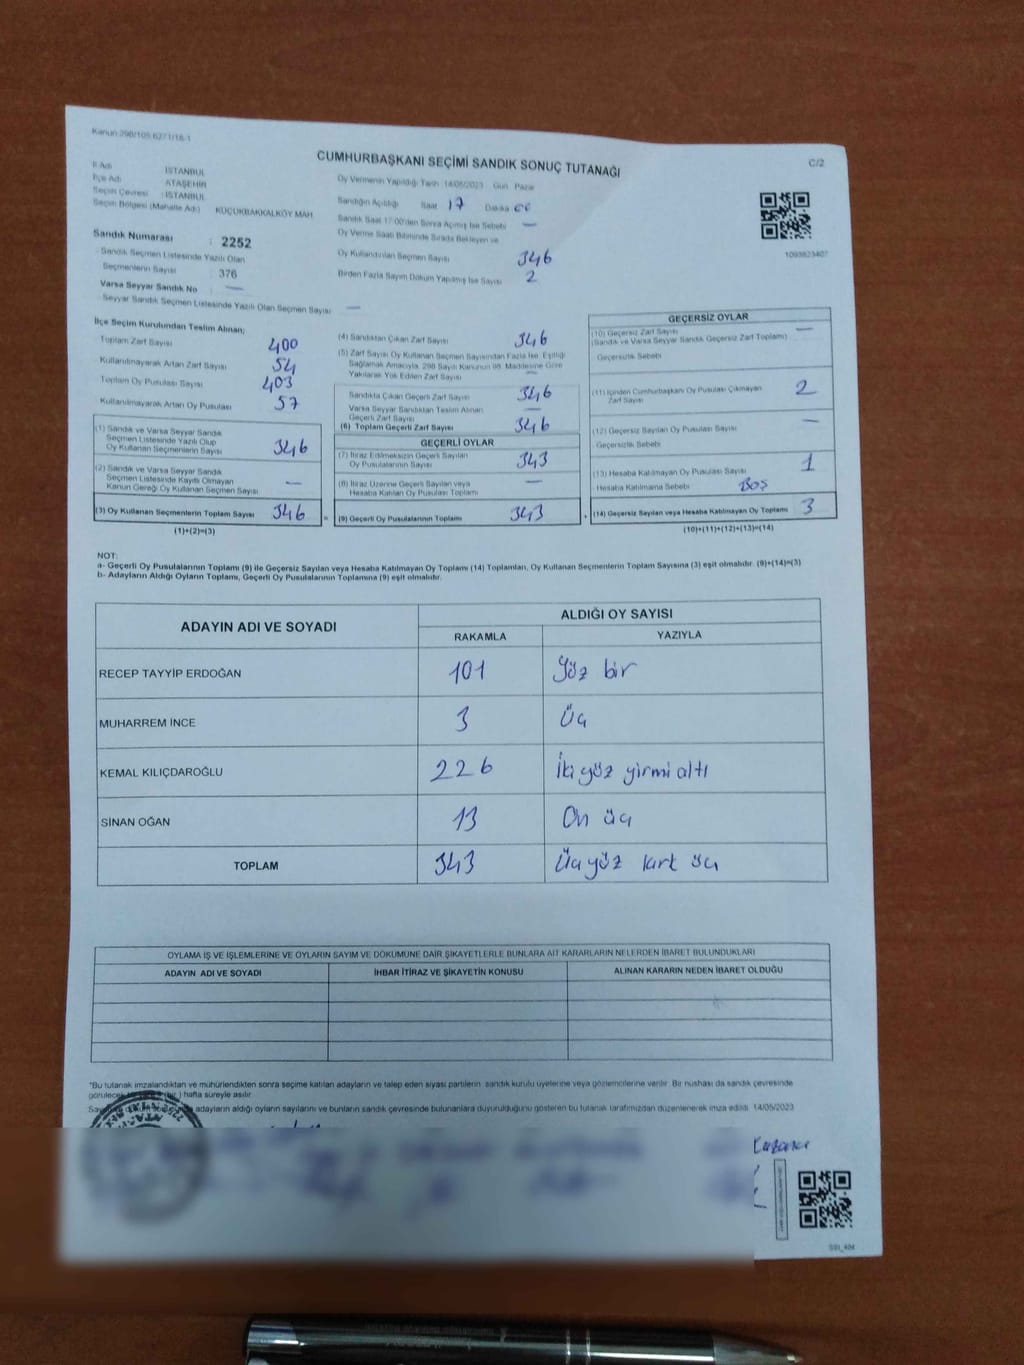 Kanun 298/105 6271/18-1
CUMHURBAŞKANI SEÇİMİ SANDIK SONUÇ TUTANAĞI
C/2
İl Adı : İSTANBUL
İlçe Adı : ATAŞEHİR
Seçim Çevresi : İSTANBUL
Seçim Bölgesi (Mahalle Adı) : KÜÇÜKBAKKALKÖY MAH
Sandık Numarası : 2252
Sandık Seçmen Listesinde Yazılı Olan
Seçmenlerin Sayısı : 376
Varsa Seyyar Sandık No : —
Seyyar Sandık Seçmen Listesinde Yazılı Olan Seçmen Sayısı : —
Oy Vermenin Yapıldığı Tarih 14/05/2023 Gün Pazar
Sandığın Açıldığı Saat 17 Dakika
Sandık Saat 17:00'den Sonra Açılmış İse Sebebi —
Oy Verme Saati Bitiminde Sırada Bekleyen ve
Oy Kullandırılan Seçmen Sayısı 346
Birden Fazla Sayım Döküm Yapılmış İse Sayısı 2
1093823407
İlçe Seçim Kurulundan Teslim Alınan;
Toplam Zarf Sayısı 400
Kullanılmayarak Artan Zarf Sayısı 54
Toplam Oy Pusulası Sayısı 403
Kullanılmayarak Artan Oy Pusulası 57
(1) Sandık ve Varsa Seyyar Sandık
Seçmen Listesinde Yazılı Olup
Oy Kullanan Seçmenlerin Sayısı 346
(2) Sandık ve Varsa Seyyar Sandık
Seçmen Listesinde Kayıtlı Olmayan
Kanun Gereği Oy Kullanan Seçmen Sayısı —
(3) Oy Kullanan Seçmenlerin Toplam Sayısı 346
(1)+(2)=(3)
(4) Sandıktan Çıkan Zarf Sayısı 346
(5) Zarf Sayısı Oy Kullanan Seçmen Sayısından Fazla İse, Eşitliği
Sağlamak Amacıyla, 298 Sayılı Kanunun 98. Maddesine Göre
Yakılarak Yok Edilen Zarf Sayısı —
Sandıkta Çıkan Geçerli Zarf Sayısı 346
Varsa Seyyar Sandıktan Teslim Alınan
Geçerli Zarf Sayısı —
(6) Toplam Geçerli Zarf Sayısı 346
GEÇERLİ OYLAR
(7) İtiraz Edilmeksizin Geçerli Sayılan
Oy Pusulalarının Sayısı 343
(8) İtiraz Üzerine Geçerli Sayılan veya
Hesaba Katılan Oy Pusulası Toplamı —
(9) Geçerli Oy Pusulalarının Toplamı 343
GEÇERSİZ OYLAR
(10) Geçersiz Zarf Sayısı —
(Sandık ve Varsa Seyyar Sandık Geçersiz Zarf Toplamı)
Geçersizlik Sebebi
(11) İçinden Cumhurbaşkanı Oy Pusulası Çıkmayan
Zarf Sayısı 2
(12) Geçersiz Sayılan Oy Pusulası Sayısı —
Geçersizlik Sebebi
(13) Hesaba Katılmayan Oy Pusulası Sayısı 1
Hesaba Katılmama Sebebi Boş
(14) Geçersiz Sayılan veya Hesaba Katılmayan Oy Toplamı 3
(10)+(11)+(12)+(13)=(14)
NOT:
a- Geçerli Oy Pusulalarının Toplamı (9) ile Geçersiz Sayılan veya Hesaba Katılmayan Oy Toplamı (14) Toplamları, Oy Kullanan Seçmenlerin Toplam Sayısına (3) eşit olmalıdır. (9)+(14)=(3)
b- Adayların Aldığı Oyların Toplamı, Geçerli Oy Pusulalarının Toplamına (9) eşit olmalıdır.
ADAYIN ADI VE SOYADI
ALDIĞI OY SAYISI
RAKAMLA YAZIYLA
RECEP TAYYİP ERDOĞAN 101 Yüz bir
MUHARREM İNCE 3 Üç
KEMAL KILIÇDAROĞLU 226 İki yüz yirmi altı
SİNAN OĞAN 13 On üç
TOPLAM 343 Üç yüz kırk üç
OYLAMA İŞ VE İŞLEMLERİNE VE OYLARIN SAYIM VE DÖKÜMÜNE DAİR ŞİKAYETLERLE BUNLARA AİT KARARLARIN NELERDEN İBARET BULUNDUKLARI
ADAYIN ADI VE SOYADI İHBAR İTİRAZ VE ŞİKAYETİN KONUSU ALINAN KARARIN NEDEN İBARET OLDUĞU
*Bu tutanak imzalandıktan ve mühürlendikten sonra seçime katılan adayların ve talep eden siyasi partilerin sandık kurulu üyelerine veya gözlemcilerine verilir. Bir nüshası da sandık çevresinde
görülecek (bir ) hafta süreyle asılır.
adayların aldığı oyların sayılarını ve bunların sandık çevresinde bulunanlara duyurulduğunu gösteren bu tutanak tarafımızdan düzenlenerek imza edildi. 14/05/2023